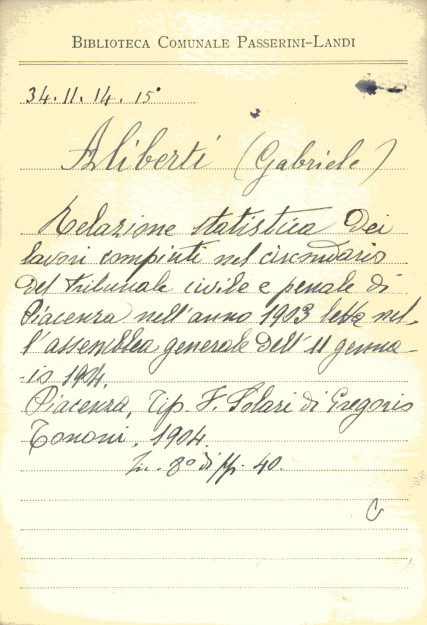 BIBLIOTECA COMUNALE PASSERINI-LANDI
34.11.14.15°
Aliberti (Gabriele)
Relazione statistica dei
lavori compiuti nel circondario
del tribunale civile e penale di
Piacenza nell'anno 1903 letta nel-
l'assemblea generale dell'11 genna-
-io 1904.
Piacenza, Tip. F. Solari di Gregorio
Tononi. 1904.
In. 8° di pp. 40.